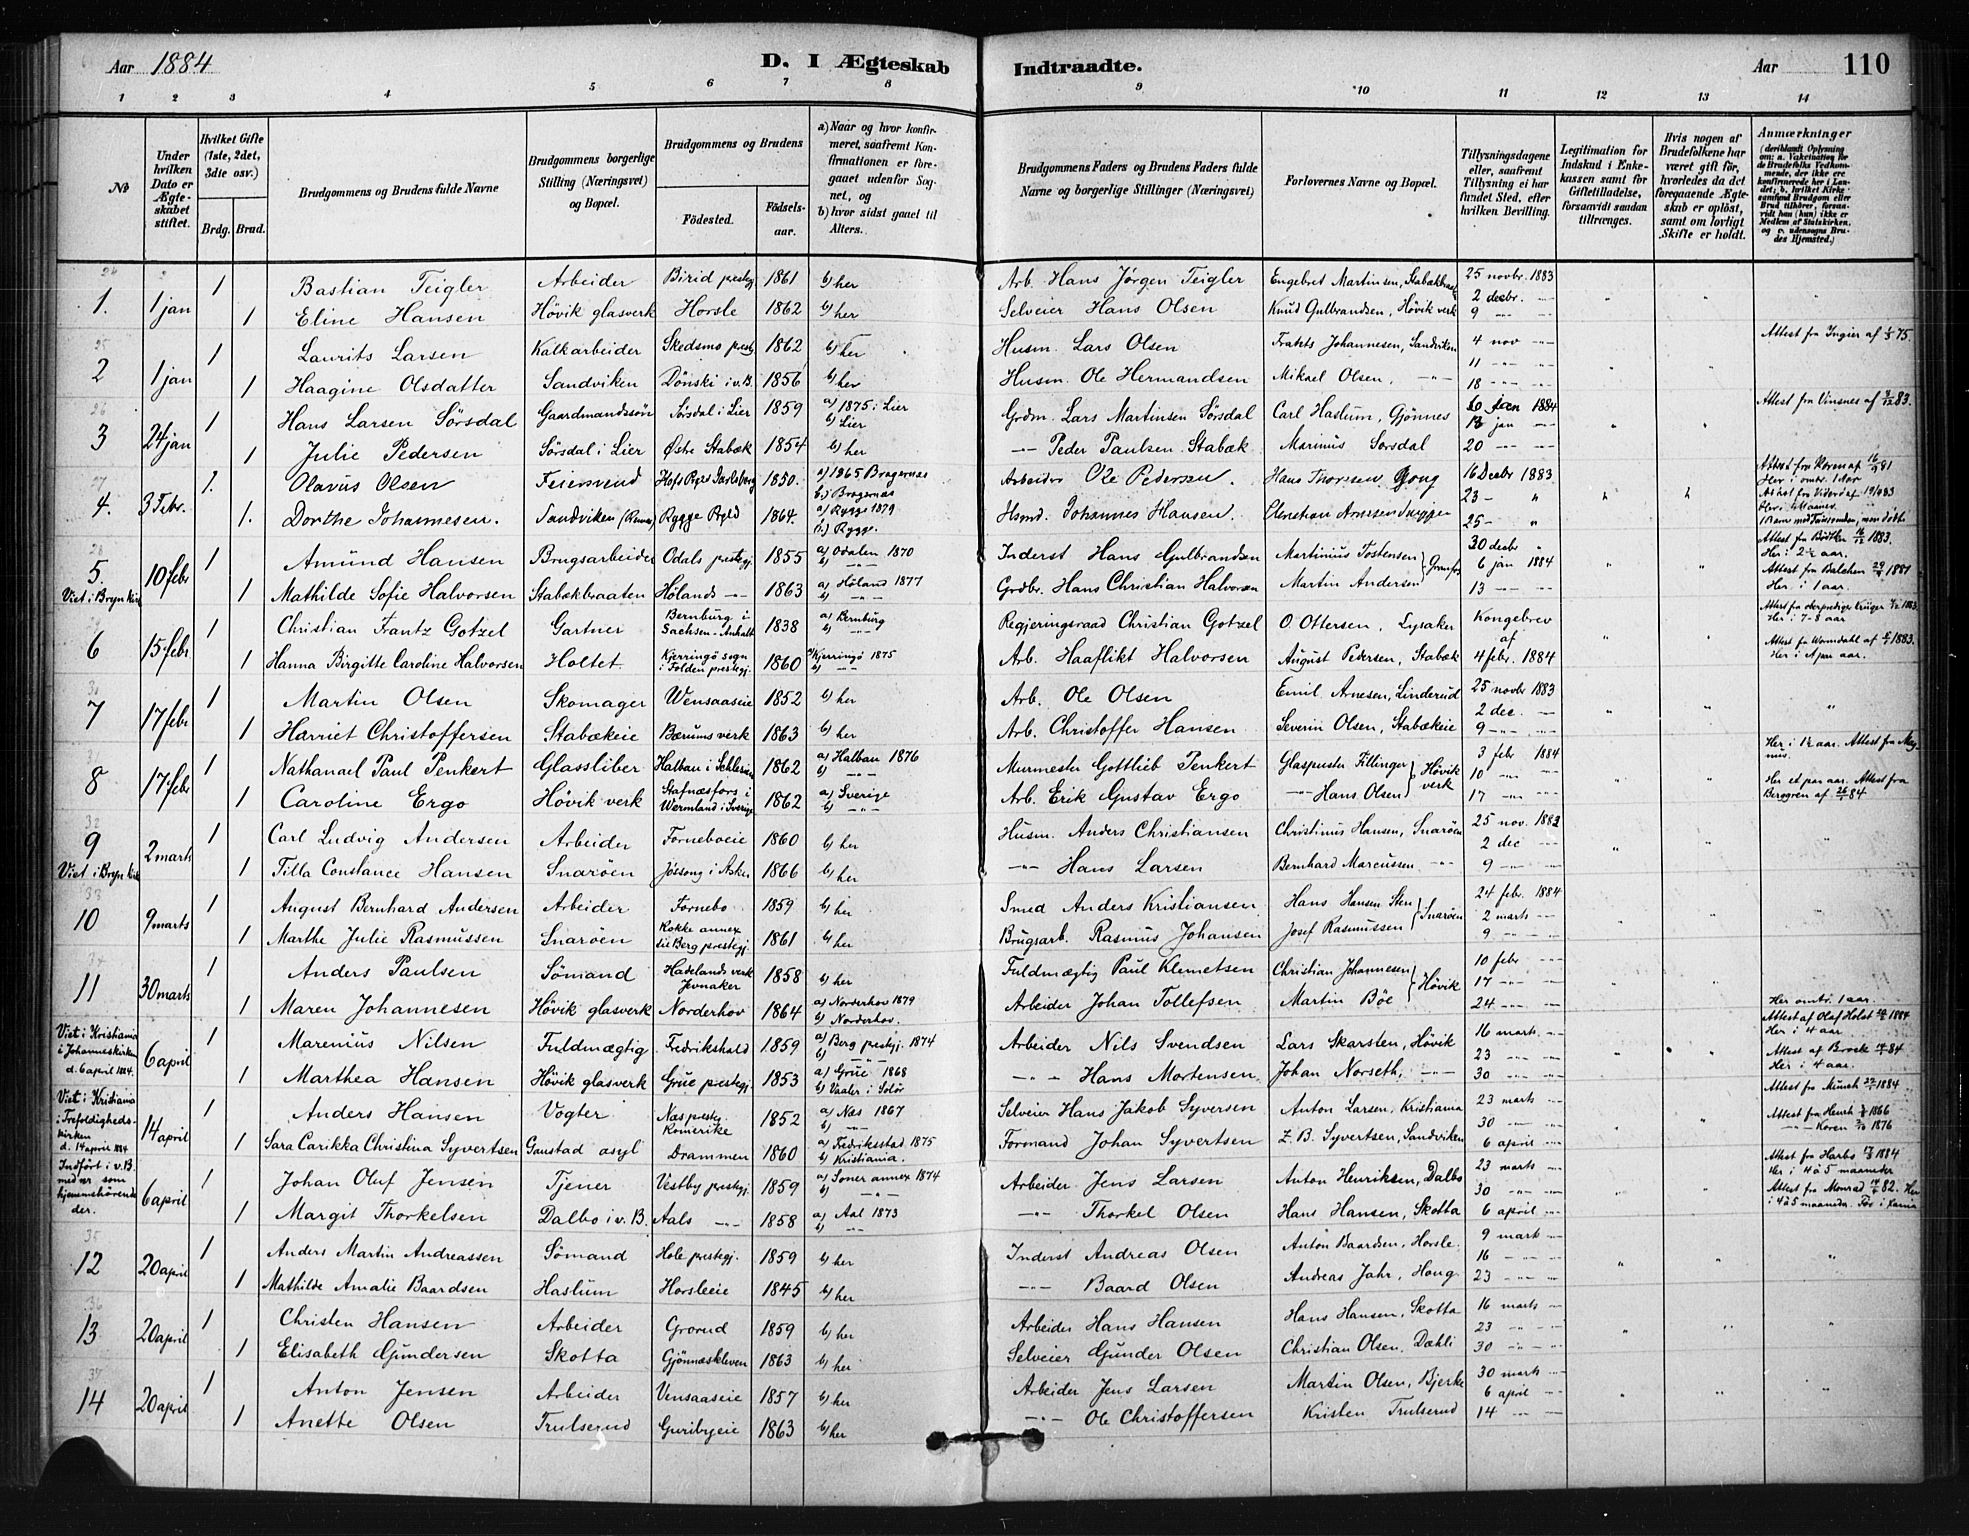 Aar 1884 D. I Ægteskab Indtraadte. Aar 110
1 2 3 4 5 6 7 8 9 10 11 12 13 14
№
Under hvilken Dato er Ægteskabet stiftet.
Hvilket Gifte (1ste, 2det, 3die osv.)
Brdg. Brud.
Brudgommens og Brudens fulde Navne
Brudgommens borgerlige Stilling (Næringsvei) og Bopæl.
Brudgommens og Brudens
Fødested. Fødselsaar.
a) Naar og hvor konfirmeret, saafremt Konfirmationen er foregaaet udenfor Sognet, og
b) hvor sidst gaaet til Alters.
Brudgommens Faders og Brudens Faders fulde Navne og borgerlige Stillinger (Næringsvei)
Forlovernes Navne og Bopæl.
Tillysningsdagene eller, saafremt Tillysning ei har fundet Sted, efter hvilken Bevilling.
Legitimation for Indskud i Enkekassen samt for Giftetilladelse, forsaavidt saadan tiltrænges.
Hvis nogen af Brudefolkene har været gift før, hvorledes da det foregaaende Ægteskab er opløst, samt om lovligt Skifte er holdt.
Anmærkninger (deriblandt Oplysning om: a. Vakcination for de Brudefolks Vedkommende, der ikke ere konfirmerede her i Landet; b. hvilket Kirkesamfund Brudgom eller Brud tilhører, forsaavidt han (hun) ikke er Medlem af Statskirken, og c. udensogns Brudes Hjemsted.)
1. 1 jan 1 Bastian Teigler Arbeider Birid prestegj 1861 b) her Arb. Hans Jørgen Teigler Engebret Martinsen, Stabækbraaten 25 novbr. 1883
1 Eline Hansen Høvik glasverk Horsle 1862 b) her Selveier Hans Olsen Knud Gulbrandsen, Høvik verk 2 decbr. 9
2 1 jan 1 Laurits Larsen Kalkarbeider Skedsmo prestg 1862 b) her Husm. Lars Olsen Johannesen, Sandviken 4 nov Attest fra Ingier af 75.
1 Haagine Olsdatter Sandviken Dønski i v. B. 1856 b) her Husm. Ole Hermandsen Mikael Olsen, 11 18
3 24 jan 1 Hans Larsen Sørsdal Gaardmandssøn Sørsdal i Lier 1859 a) 1875 i Lier b) Lier Grdm. Lars Martinsen Sørsdal Carl Haslum, Gjønnes 6 jan 1884 Attest fra Vinsnes af 83.
1 Julie Pedersen Sørsdal i Lier Østre Stabæk 1854 b) her Peder Paulsen Stabæk Marinus Sørsdal 13 jan 20
4. 3 Febr. 1. Olavus Olsen Feiersvend Hofs 1850. a) 1865 Bragernæs b.) Bragernæs Arbeider Ole Pedersen. Hans Thoresen 16 Decbr 1883 Attest fra Koren af 16/ 81 Her i omtr. 1 Aar
1. Dorthe Johannesen. Sandviken Rygge 1864. a) Rygge 1879 b.) Rygge. Hsmd. Johannes Hansen. Christian 23 25
5. 10 febr 1 Amund Hansen Brugsarbeider Odals prestegj. 1855 a) Odalen 1870 Inderst Hans Gulbrandsen Martinius Tostensen 30 decbr 1883. Her i 2½ aar.
Viet i Bryn kirke 1 Mathilde Sofie Halvorsen Stabækbraaten Hølands 1863 a) Høland 1877 Grdbr. Hans Christian Halvorsen Martin Andersen 6 jan 1884 13 Attest fra Balchen 1881 Her i 1 aar.
6 15 febr 1 Christian Frantz Gotzel Gartner Bernburg i Sachsen-Anhalt 1838 a) Bernburg Regjeringsraad Christian Gotzel O. Ottersen, Lysaker Kongebrev af Her i 7-8 aar
1 Hanna Birgitte Caroline Halvorsen Holtet Kjerringø sogn i Folden prestegj. 1860 a) Kjerringø 1875 Arb. Haaflikt Halvorsen August Pedersen, Stabæk 4 febr. 1884 Attest fra Worndahl af 1883. Her i et par aar.
7 17 febr 1 Martin Olsen Skomager Wensaaseie 1852 b) her Arb. Ole Olsen Emil Arnesen, Linderud 25 novbr 1883
1 Harriet Christoffersen Stabækeie Bærums verk 1863 b) her Arb. Christoffer Hansen Severin Olsen, Stabækeie 2 dec. 9
8 17 febr 1 Nathanael Paul Penkert Glassliber Halbau i Schlesien 1862 a) Halbau 1876 Murmester Gottlieb Penkert Glaspuster Fillinger Høvik verk 3 febr 1884 Her i 1½ aar. Attest fra Magnus.
1 Caroline Ergo Høvik verk Stafnæsfors i Wermland i Sverige 1862 a) Sverige Arb. Erik Gustav Ergo Hans Olsen 10 17 Her et par aar. Attest fra Berggren af 26/ 84
9 2 marts 1 Carl Ludvig Andersen Arbeider Forneboeie 1860 b) her Husm. Anders Christiansen Christinus Hansen, Snarøen 25 nov. 1883
Viet i Bryn kirke 1 Tilla Constance Hansen Snarøen Jøssong i Asker 1866 b) her Hans Larsen Bernhard Marcussen 2 dec 9
10 9 marts 1 August Bernhard Andersen Arbeider Fornebo 1859 b) her Smed Anders Kristiansen Hans Hansen Sten Snarøen 24 febr. 1884
1 Marthe Julie Rasmussen Snarøen Rokke annex til Berg prestegj. 1861 b) her Brugsarb. Rasmus Johansen Josef Rasmussen 2 marts 9
11 30 marts 1 Anders Paulsen Sømand Hadelands verk Jevnaker 1858 b) her Fuldmægtig Paul Klemetsen Christian Johannesen Høvik 10 febr
1 Maren Johannesen Høvik glasverk Norderhov 1864 a) Norderhov 1879 b) Norderhov. Arbeider Johan Tollefsen Martin Bøe 17 24 Her omtr. 1 aar.
Viet i Kristiania i Johanneskirken d. 6 april 1884. 6 april 1 Marenius Nilsen Fuldmægtig Fredrikshald 1859 a) Berg prestgj. 1874 Arbeider Nils Svendsen Lars Skarsten, Høvik 16 marts Attest af Olaf Holst 1884 Her i 4 aar
1 Marthea Hansen Høvik glasverk Grue prestegj. 1853 a) Grue 1868 b) Vaaler i Solør Hans Mortensen Johan Norseth, 23 30 Attest af Brock 84 Her i 4 aar.
Viet i Kristiania i Trefoldighedskirken d. 14 april 1884 14 april 1 Anders Hansen Vogter Næs prestegj. Romerike 1852 a) Næs 1867 Selveier Hans Jakob Syversen Anton Larsen, Kristiania 23 marts Attest fra Munch 1884.
1 Sara Carikka Christina Syvertsen Gaustad asyl Drammen 1860 a) Fredriksstad 1875 b) Kristiania. Formand Johan Syvertsen Z. B. Syvertsen, Sandviken 30 6 april Attest fra Henth 1866 Koren 1876
Indført i v. B. med nr som hjemmehørende der. 6 april 1 Johan Oluf Jensen Tjener Vestby prestegj. 1859 a) Soner annex 1874 Arbeider Jens Larsen Anton Henriksen, Dalbo 23 marts Attest fra Harbo 1884 Her i 4 à 5 maaneder
1 Margit Thorkelsen Dalbo i v. B. Aals 1858 a) Aal 1873 Thorkel Olsen Hans Hansen, Skotta 30 6 april Attest fra Monrad 82. Her i 4 à 5 maaneder. Før i Xania
12 20 april 1 Anders Martin Andreassen Sømand Hole prestegj. 1859 b) her Inderst Andreas Olsen Anton Baardsen, Horsle. 9 marts
1 Mathilde Amalie Baardsen Haslum Horsleeie 1845 b) her Baard Olsen Andreas Jahr, Haug 16 23
13 20 april 1 Christen Hansen Arbeider Grorud 1859 b) her Arbeider Hans Hansen Hans Hansen, Skotta 16 marts
1 Elisabeth Gundersen Skotta Gjønnæskleven 1863 b) her Selveier Gunder Olsen Christian Olsen, Dæhli 23 30
14 20 april 1 Anton Jensen Arbeider Vensaaseie 1857 b) her Arbeider Jens Larsen Martin Olsen, Bjerke 30 marts
1 Anette Olsen Trulserud Guribyeie 1863 b) her Ole Christoffersen Kristen Trulserud 6 april 14